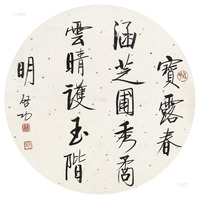 寶露春
涵芝圃秀喬
雲晴護玉階
明
啓功